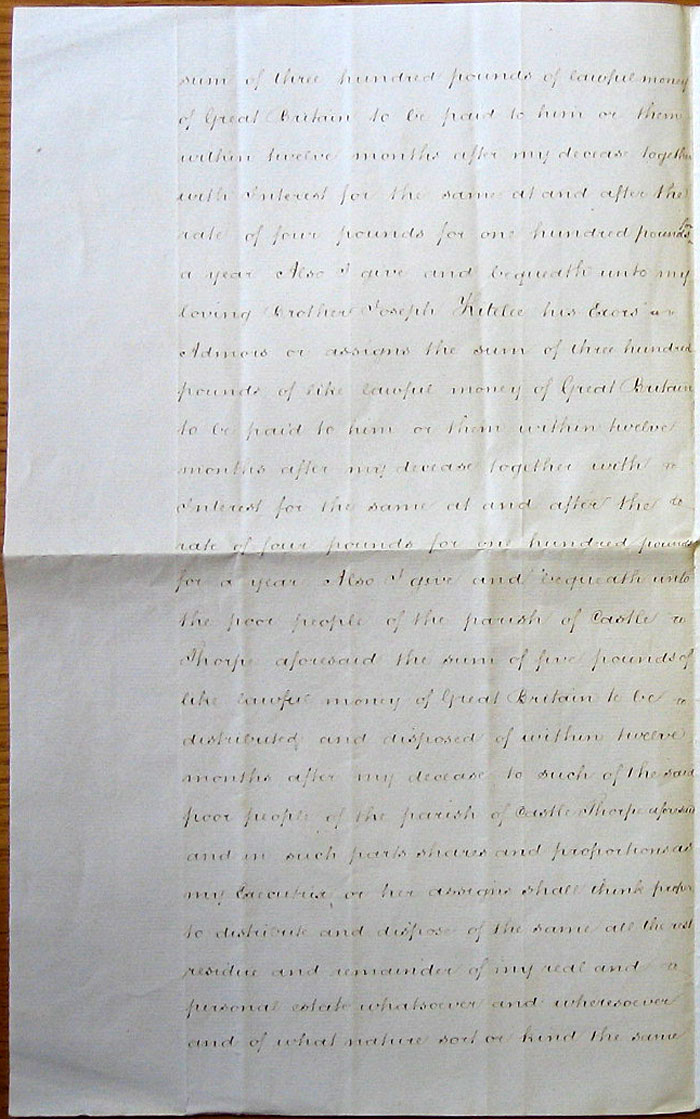 sum of three hundred pounds of lawful money
of Great Britain to be paid to him or them
within twelve months after my decease together
with Interest for the same at and after the
rate of four pounds for one hundred pounds for
a year Also I give and bequeath unto my
loving Brother Joseph Kitelee his Exors or
Admors or assigns the sum of three hundred
pounds of like lawful money of Great Britain
to be paid to him or them within twelve
months after my decease together with
Interest for the same at and after the
rate of four pounds for one hundred pounds
for a year Also I give and bequeath unto
the poor people of the parish of Castle
Thorpe aforesaid the sum of five pounds of
like lawful money of Great Britain to be
distributed and disposed of within twelve
months after my decease to such of the said
poor people of the parish of Castle Thorpe aforesaid
and in such parts shares and proportions as
my Executrix or her assigns shall think proper
to distribute and dispose of the same all the rest
residue and remainder of my real and
personal estate whatsoever and wheresoever
and of what nature sort or kind the same